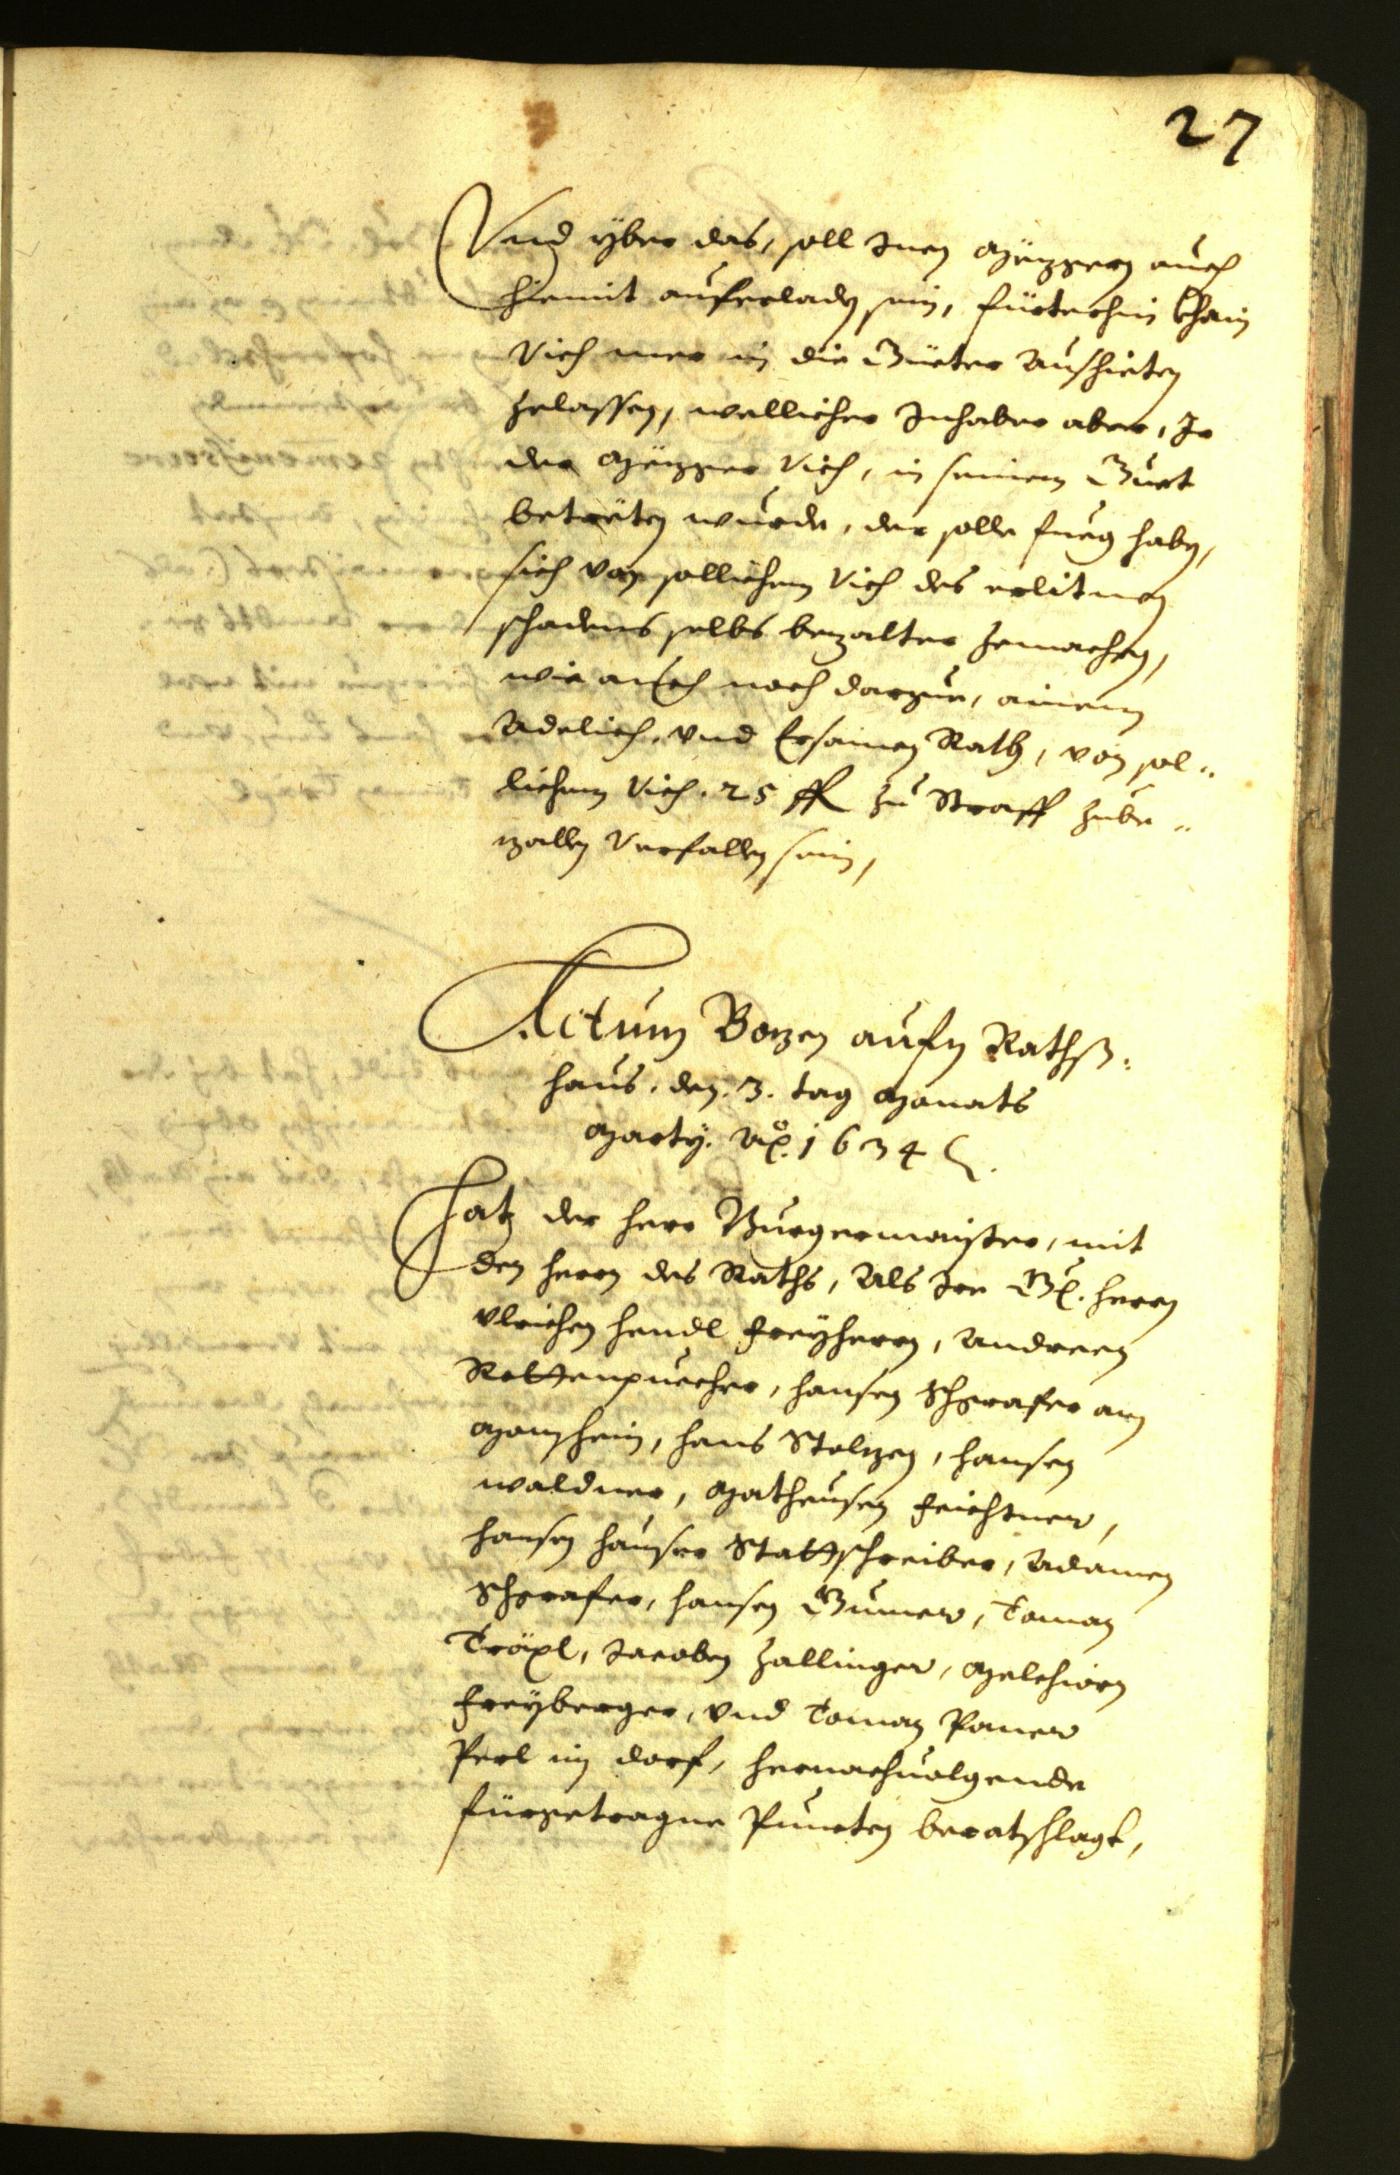 27
Vnd yber das, soll Inen Mezgern auch
hiemit auferladen sein, fürterhin khain
Vich mer in die Güeter Aushieten
zelassen, wellicher Inhaber aber, Ir
der Mezger Vich, in seinem Guet
betreten wurde, der solle fueg haben,
sich von sollichem Vich des erlitnen
schadens selbs bezalter zemachen,
wie auch noch darzue, ainem
Adelich. vnd Ersamen Rath, von sol"
lichem Vich. 25 fl zu Straff zube"
zallen Verfallen sein,
Actum Bozen aufn Rathß:
haus. den. 3. tag Monats
Marty. Ao. 1634
Hat der herr Burgermaister, mit
den herrn des Raths, Als Ire G. herrn
Vlrichen hendl freyherrn, Andreen
Rottenpuecher, hansen Schgrafer am
hans Stolzen, hansen
waldner, Matheusen feichtner,
hansen hauser Stattschreiber, Adamen
Schgrafer, hansen Gumer, Toman
Träpl, Jacoben Zallinger, Melchiorn
freyberger, vnd Toman
im dorf, hernachuolgende
fürgetragne Puncten beratschlagt,